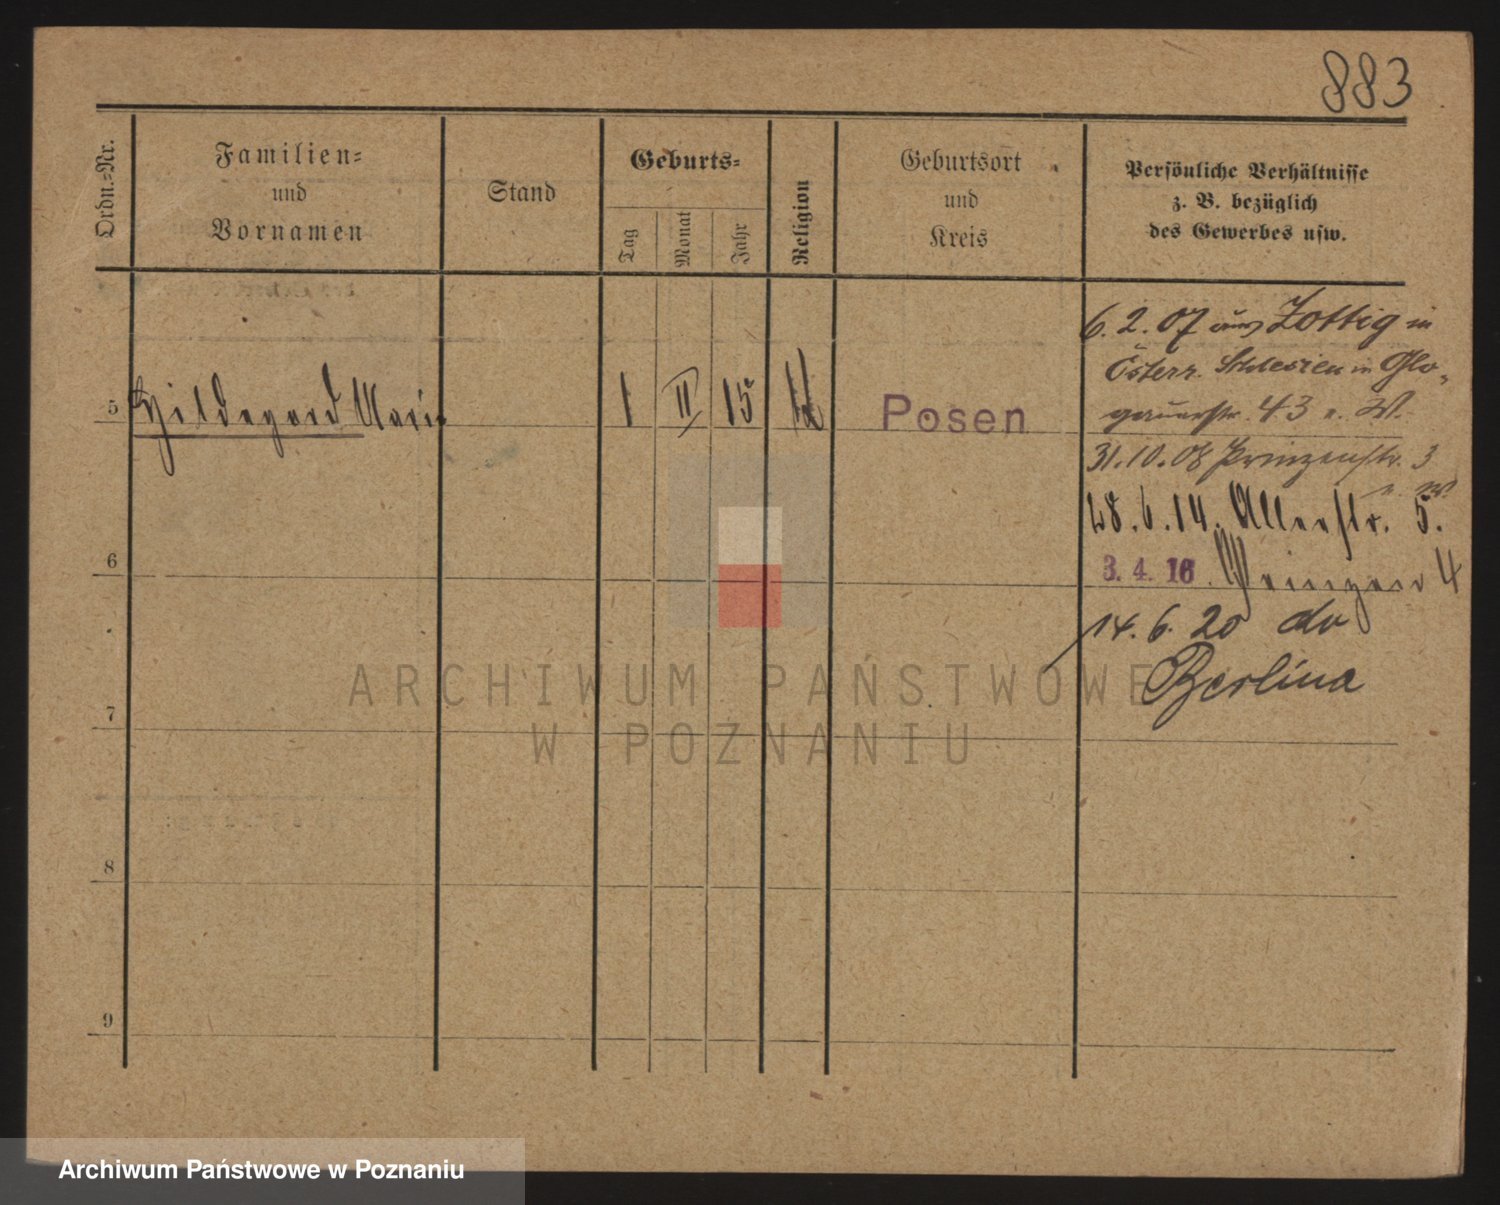 883
Ordn.-Nr.
Familien-
und
Vornamen
Stand
Geburts-
Tag
Monat
Jahr
Religion
Geburtsort
und
Kreis
Persönliche Verhältnisse
z. B. bezüglich
des Gewerbes usw.
6.2.07 aus Zottig in
Österr. Schlesien in Glo-
gauerstr. 43 n. W.
5 Hildegard Marie 1 II 15 Posen
31.10.08 Prinzenstr. 3
n. W.
28.6.14. Allerstr. 5.
6
3. 4. 16. 4
14.6.20 do
Berlina
7
8
9
ARCHIWUM PAŃSTWOWE
W POZNANIU
Archiwum Państwowe w Poznaniu